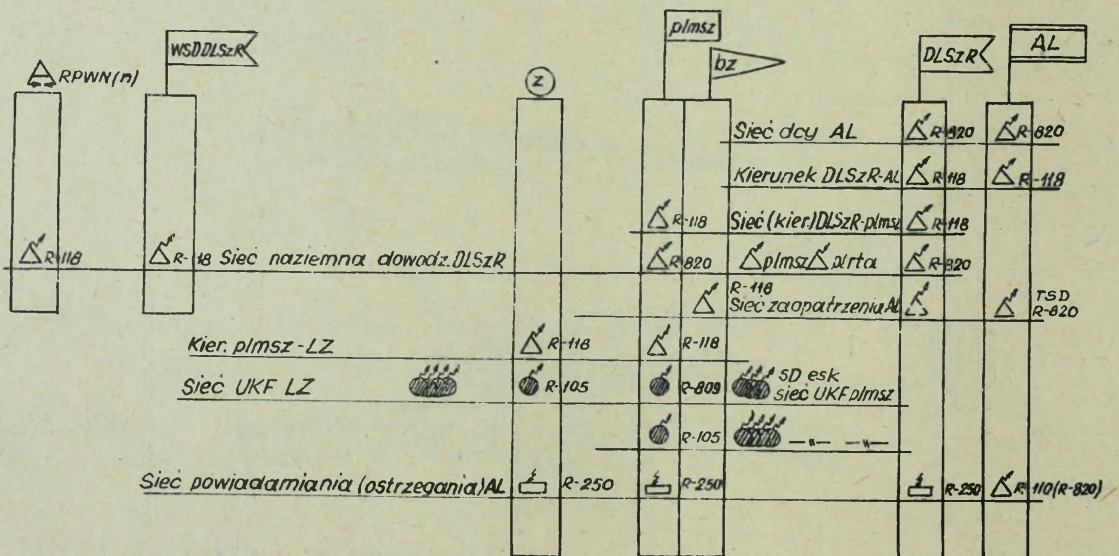 plmsz
WSDDLSzR
bz
DLSzR
AL
RPWN(n)
z
Sieć dcy AL R-820 R-820
Kierunek DLSzR-AL R-118 R-118
R-118 Sieć (kier.) DLSzR-plmsz R-118
R-118 R-118 Sieć naziemna dowodz. DLSzR R-820 plmsz plrta R-820
R-118
Sieć zaopatrzenia AL TSD
R-820
Kier. plmsz-LZ R-118 R-118
Sieć UKF LZ R-105 R-809 SD esk
sieć UKF plmsz
R-105 —"— —"—
Sieć powiadamiania (ostrzegania) AL R-250 R-250 R-250 R-110 (R-820)